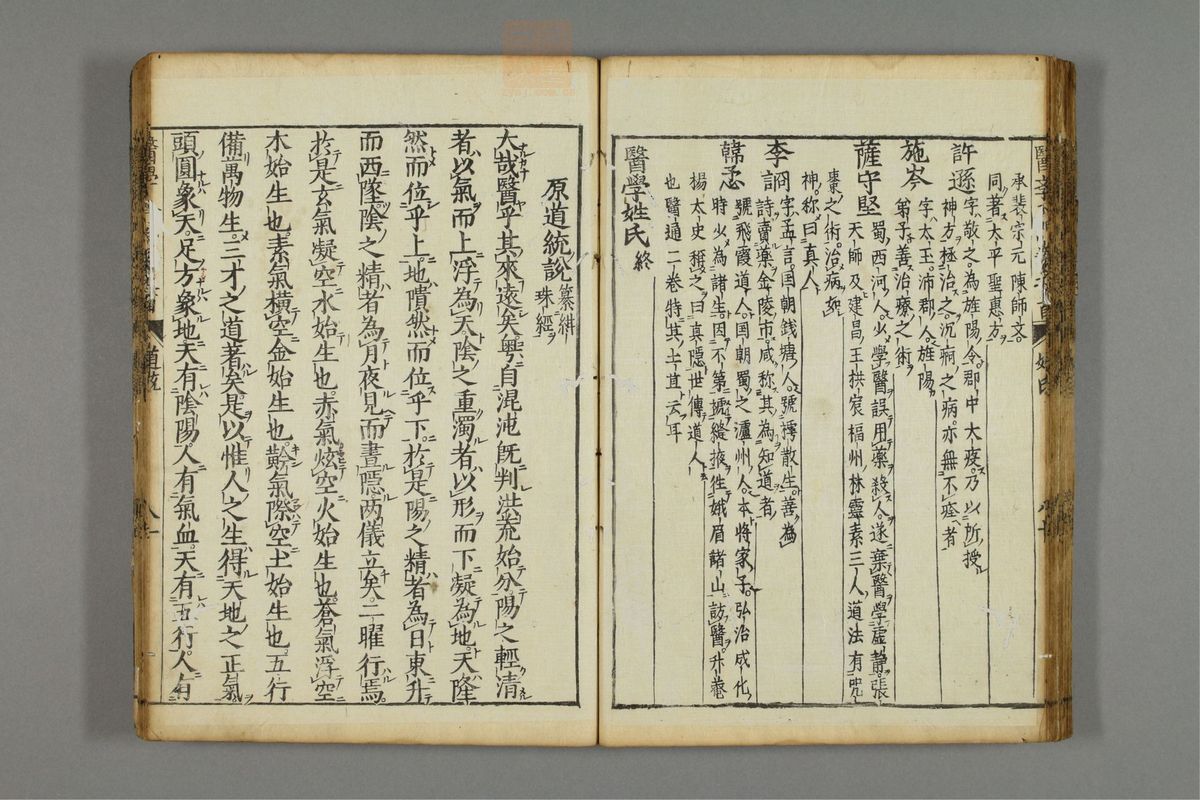 承裴宗元陳師文
同著太平聖惠方
許遜字敬之為旌陽令郡中大疫乃以所授
神方極治之沉痾之病亦無不瘥者
施岑字太玉沛郡人旌陽
弟子善治療之術
薩守堅蜀西河人少學醫誤用藥殺人遂棄醫學虛靜張
天師及建昌王拱宸福州林靈素三人道法有咒
棗之術治病如
神称曰真人
李詗字孟言国朝錢塘人號樗散生善為
詩賣藥金陵市咸称其為知道者
韓𢘅號飛霞道人国朝蜀之瀘州人本將家子弘治成化
時少為諸生因不第褫縫掖往峨眉諸山訪醫升菴
楊太史稱之曰真隱世傳道人
也醫通二卷特其土苴云耳
醫學姓氏終
姓氏
原道統說
纂緝
珠經
大哉醫乎其來遠矣粵自混沌既判洪荒始分陽之輕清
者以氣而上浮為天陰之重濁者以形而下凝為地天隆
然而位乎上地隤然而位乎下於是陽之精者為日東升
而西墜陰之精者為月夜見而晝隱两儀立矣二曜行焉
於是玄氣凝空水始生也赤氣炫空火始生也蒼氣浮空
木始生也素氣橫空金始生也黅氣際空土始生也五行
備萬物生三才之道著矣是以惟人之生得天地之正氣
頭圓象天足方象地天有陰陽人有氣血天有五行人有
道統